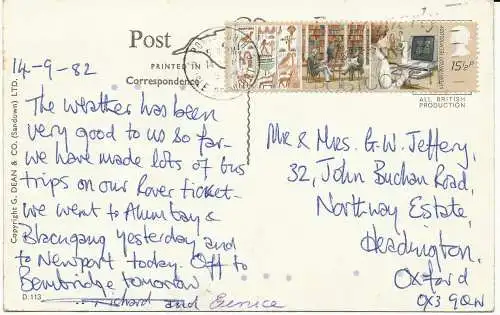 Post
PRINTED IN
Correspondence
15½P
ALL BRITISH
PRODUCTION
Copyright G. DEAN & CO. (Sandown) LTD.
D.113
14-9-82
The weather has been
very good to us so far-
we have made lots of bus
trips on our Rover ticket-
we went to Alum bay &
Blacngang yesterday and
to Newport today. Off to
Bembridge tomorrow
Richard and Eunice
Mr & Mrs. G.W. Jeffery,
32, John Buchan Road,
Northway Estate,
Headington,
Oxford
OX3 9QN